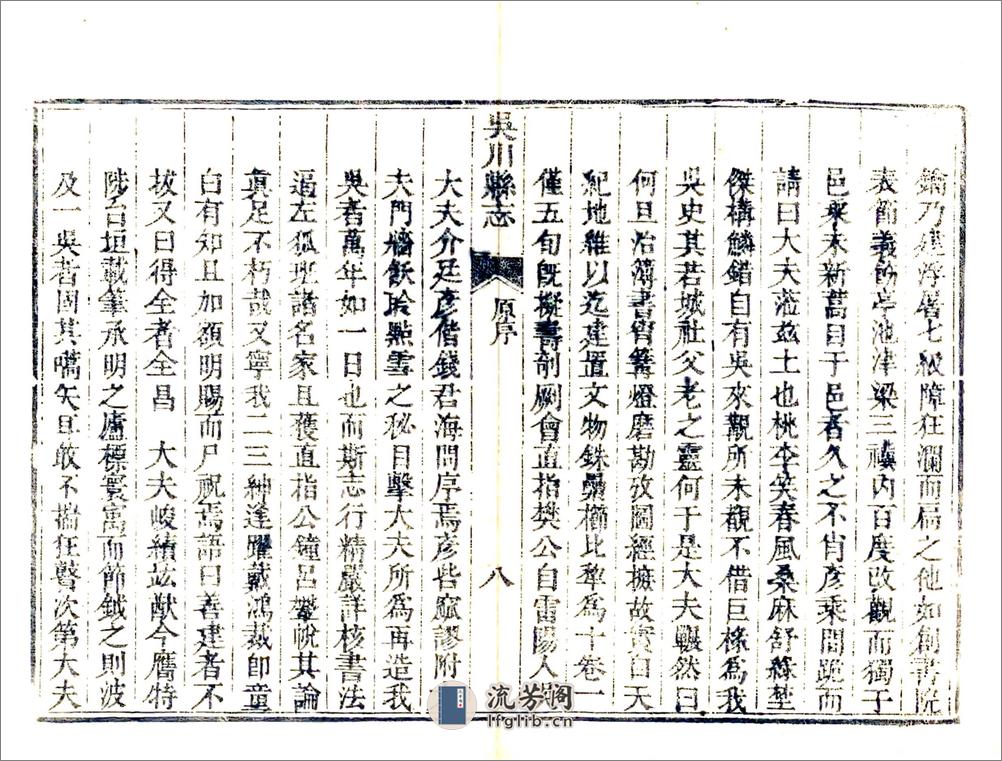 鑰乃建浮屠七級障狂瀾而扃之他如創書院
表節義飭亭池津梁三禩內百度改觀而獨于
邑乘未新萬目于邑者久之不肖彥乘間跪而
請曰大夫涖茲土也桃李笑春風桑麻舒綠埜
傑構鱗錯自有吳來觀所未觀不借巨椽為我
吳史其若城社父老之靈何于是大夫囅然曰
何旦冶簿書宵篝燈磨勘攷圖經摭故實曰天
紀地維以迄建置文物銖纍櫛比犂為十卷一
僅五旬旣擬壽剞劂會直指樊公自雷陽入
吳川縣志
原序
八
大夫介廷彥偕錢君海問序焉彥呰窳謬附
夫門牆飫聆點雪之秘目擊大夫所為再造我
吳者萬年如一日也而斯志行精嚴詳核書法
逼左狐班諸名家且獲直指公鐘呂鞶帨其論
眞足不朽哉又寧我二三紳逢躍戴鴻裁卽童
白有知且加額明賜而尸祝焉語曰善建者不
拔又曰得全者全昌 大夫峻績訏猷今膺特
陟台垣載筆承明之廬標寰寓而節鉞之則波
及一吳者固其嚆矢旦敢不揣狂瞽次第大夫
流芳阁
lfglib.cn